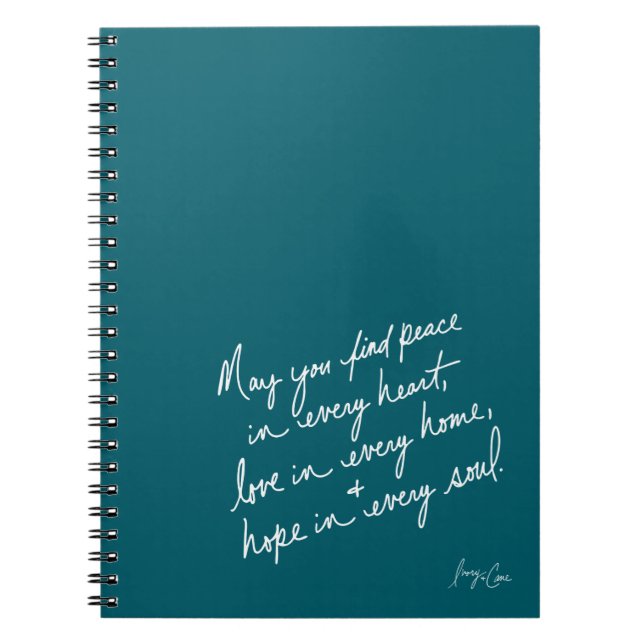 May you find peace
in every heart,
love in every home,
+
hope in every soul.
Ivory + Cane